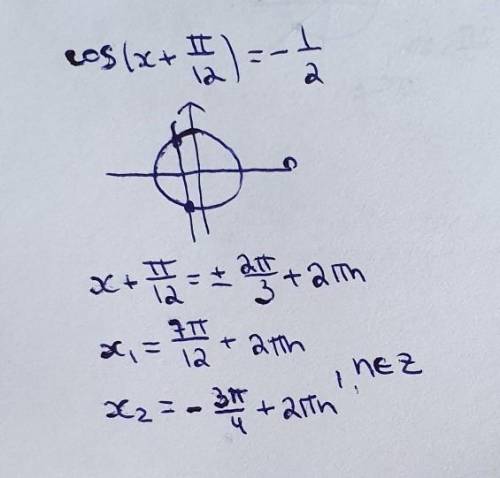 cos(x + π/12) = - 1/2
x + π/12 = ± 2π/3 + 2πn
x₁ = 7π/12 + 2πn
x₂ = - 3π/4 + 2πn , n∈Z